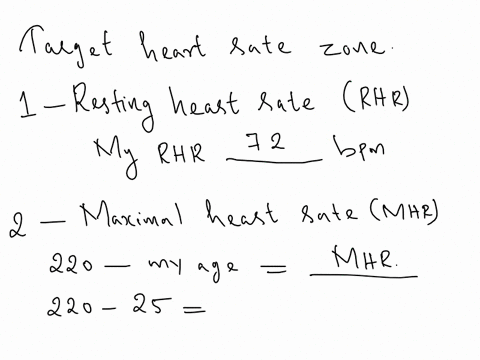 Target heart rate zone.
1 - Resting heart rate (RHR)
My RHR 72 bpm
2 - Maximal heart rate (MHR)
220 - my age = MHR.
220 - 25 =